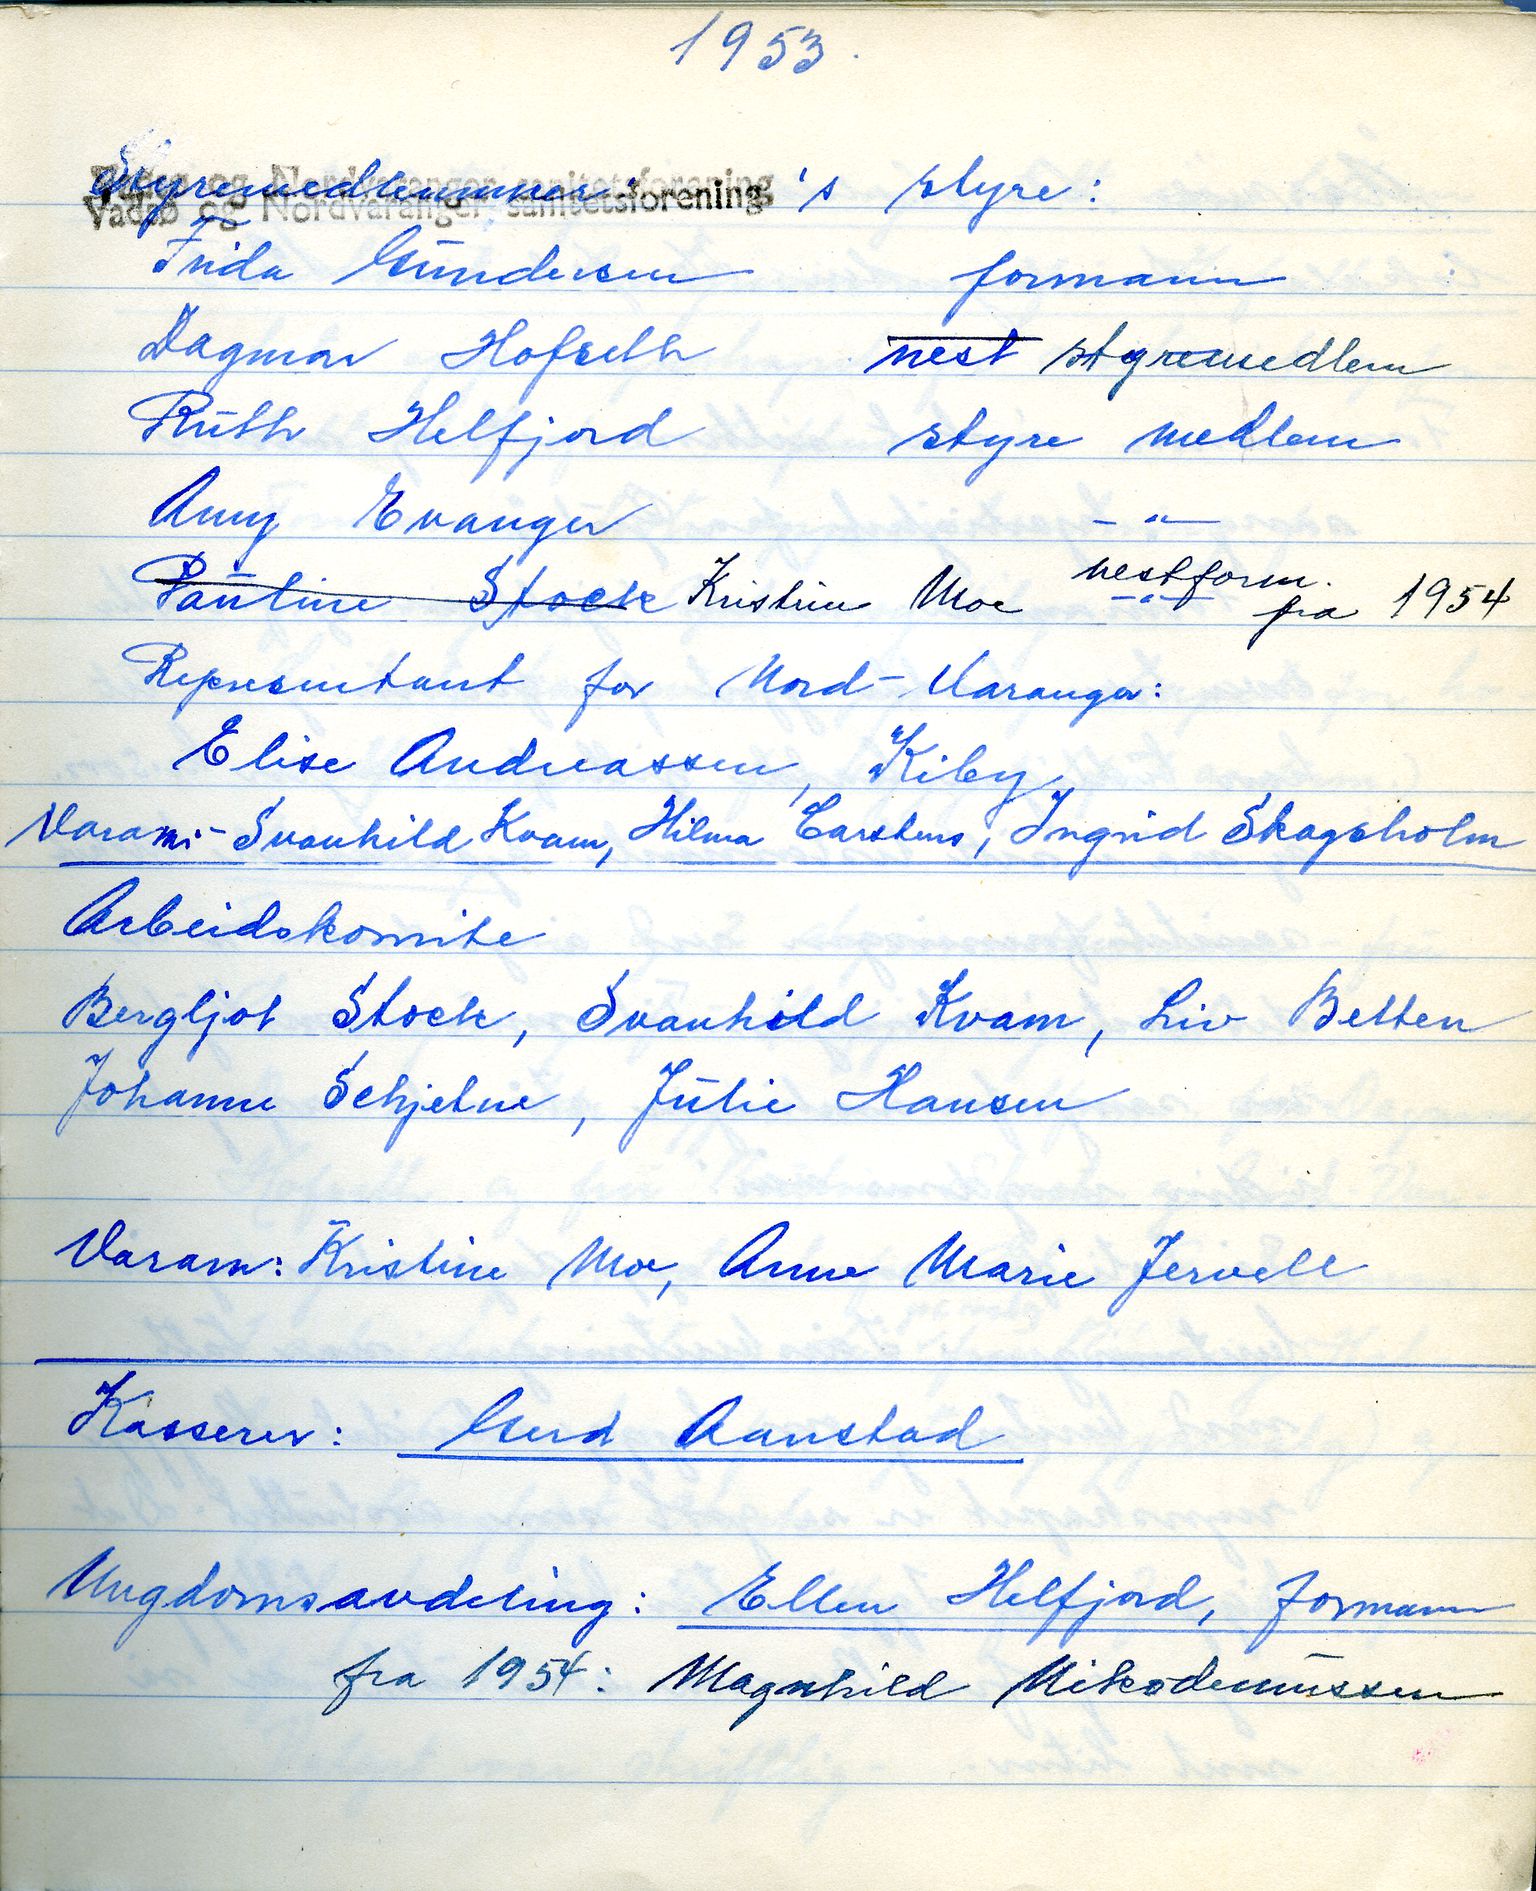 1953.
Styremedlemmer:
Vadsø og Nordvaranger sanitetsforening
Vadsø og Nordvaranger sanitetsforening 's styre:
Frida Gundersen formann
Dagmar Hofseth nest styremedlem
Ruth Helfjord styre medlem
Amy Evanger — " —
Pauline Stock Kristine Moe nestform. — " — fra 1954
Representant for Nord-Varanger:
Elise Andreassen, Kiby
Varam:- Svanhild Kvam, Hilma Carstens, Ingrid Skagsholm
Arbeidskomite
Bergljot Stock, Svanhild Kvam, Liv Betten
Johanne Schjelne, Julie Hansen
Varam: Kristine Moe, Anne Marie Jervell
Kasserer: Gerd Aanstad
Ungdomsavdeling: Ellen Helfjord, formann
fra 1954: Magnhild Nikodemussen